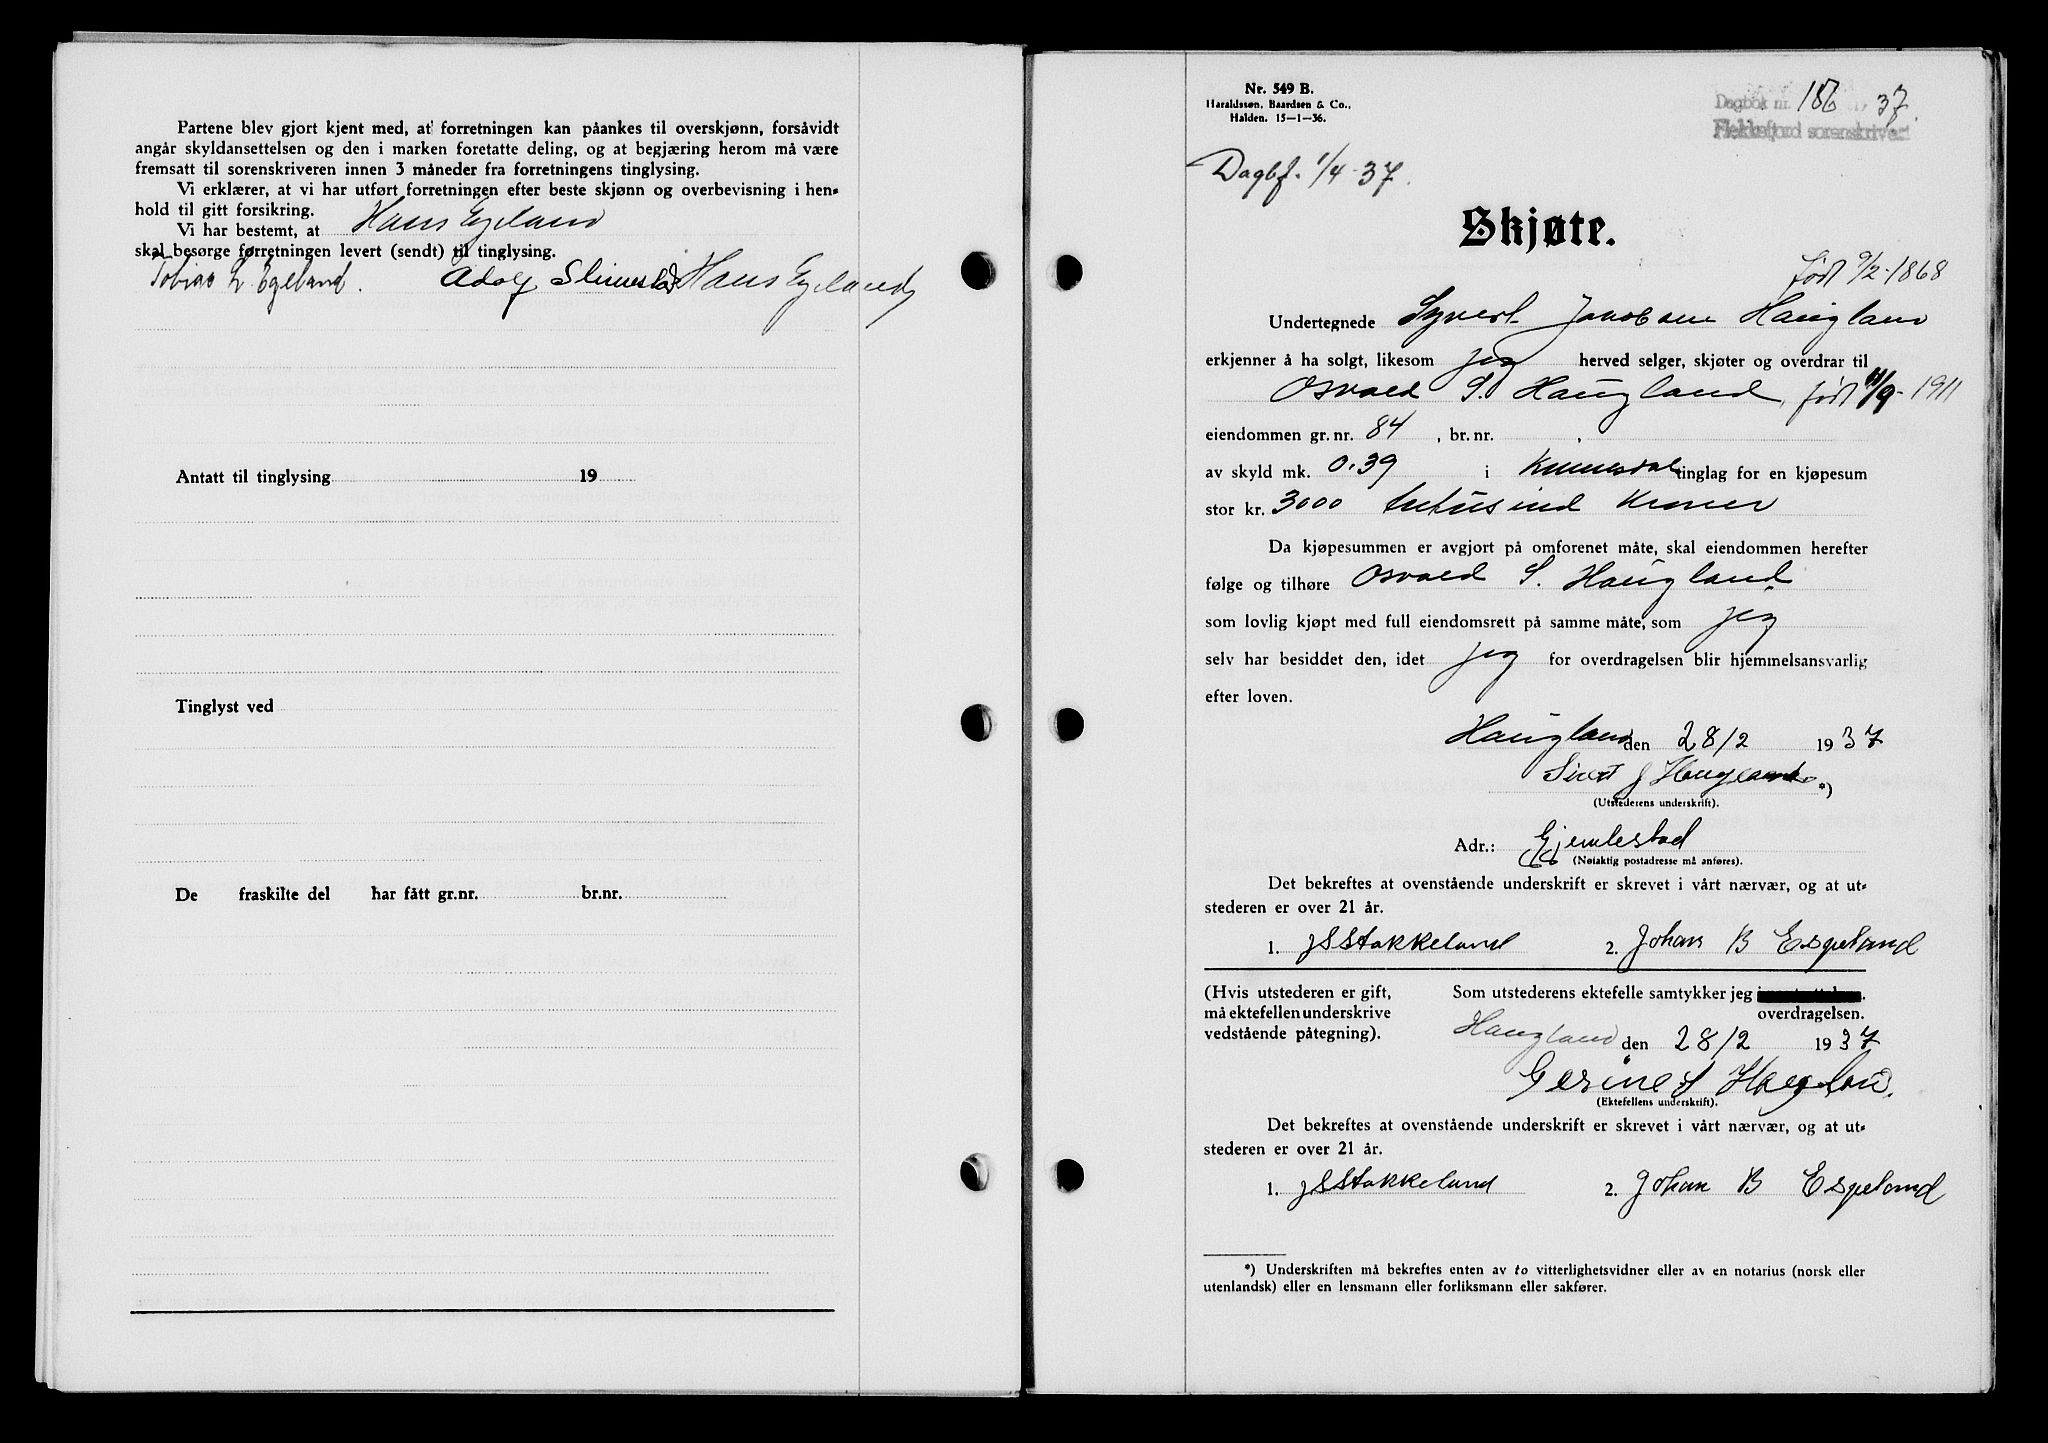 Partene blev gjort kjent med, at forretningen kan påankes til overskjønn, forsåvidt
angår skyldansettelsen og den i marken foretatte deling, og at begjæring herom må være
fremsatt til sorenskriveren innen 3 måneder fra forretningens tinglysing.
Vi erklærer, at vi har utført forretningen efter beste skjønn og overbevisning i hen-
hold til gitt forsikring.
Vi har bestemt, at Hans Egeland
skal besørge forretningen levert (sendt) til tinglysing.
Tobias L Egeland. Adolf Hans Egeland
Antatt til tinglysing 19
Tinglyst ved
De fraskilte del har fått gr.nr. br.nr.
Nr. 549 B.
Haraldssøn, Baardsen & Co.,
Halden. 15-1-36.
Dagbok nr. 186 1937.
Flekkefjord sorenskriveri
Dagbf. 1/4-37.
Skjøte.
født 9/2-1868
Undertegnede Syvert Jakobsen Haugland
erkjenner å ha solgt, likesom jeg herved selger, skjøter og overdrar til
Osvald S. Haugland, født 11/9-1911
eiendommen gr. nr. 84, br. nr.
av skyld mk. 0.39 i Kvinesdal tinglag for en kjøpesum
stor kr. 3000 tretusind Kroner
Da kjøpesummen er avgjort på omforenet måte, skal eiendommen herefter
følge og tilhøre Osvald S. Haugland
som lovlig kjøpt med full eiendomsrett på samme måte, som jeg
selv har besiddet den, idet jeg for overdragelsen blir hjemmelsansvarlig
efter loven.
Haugland den 28/2 1937
Sivert J Haugland *)
(Utstederens underskrift).
Adr.: Gjemlestad
(Nøiaktig postadresse må anføres).
Det bekreftes at ovenstående underskrift er skrevet i vårt nærvær, og at ut-
stederen er over 21 år.
1. JSStakkeland 2. Johan B Espeland
(Hvis utstederen er gift, Som utstederens ektefelle samtykker jeg
må ektefellen underskrive overdragelsen.
vedstående påtegning). Haugland den 28/2 1937
Gesine S Haugland.
(Ektefellens underskrift).
Det bekreftes at ovenstående underskrift er skrevet i vårt nærvær, og at ut-
stederen er over 21 år.
1. JSStakkeland 2. Johan B Espeland
*) Underskriften må bekreftes enten av to vitterlighetsvidner eller av en notarius (norsk eller
utenlandsk) eller en lensmann eller forliksmann eller sakfører.